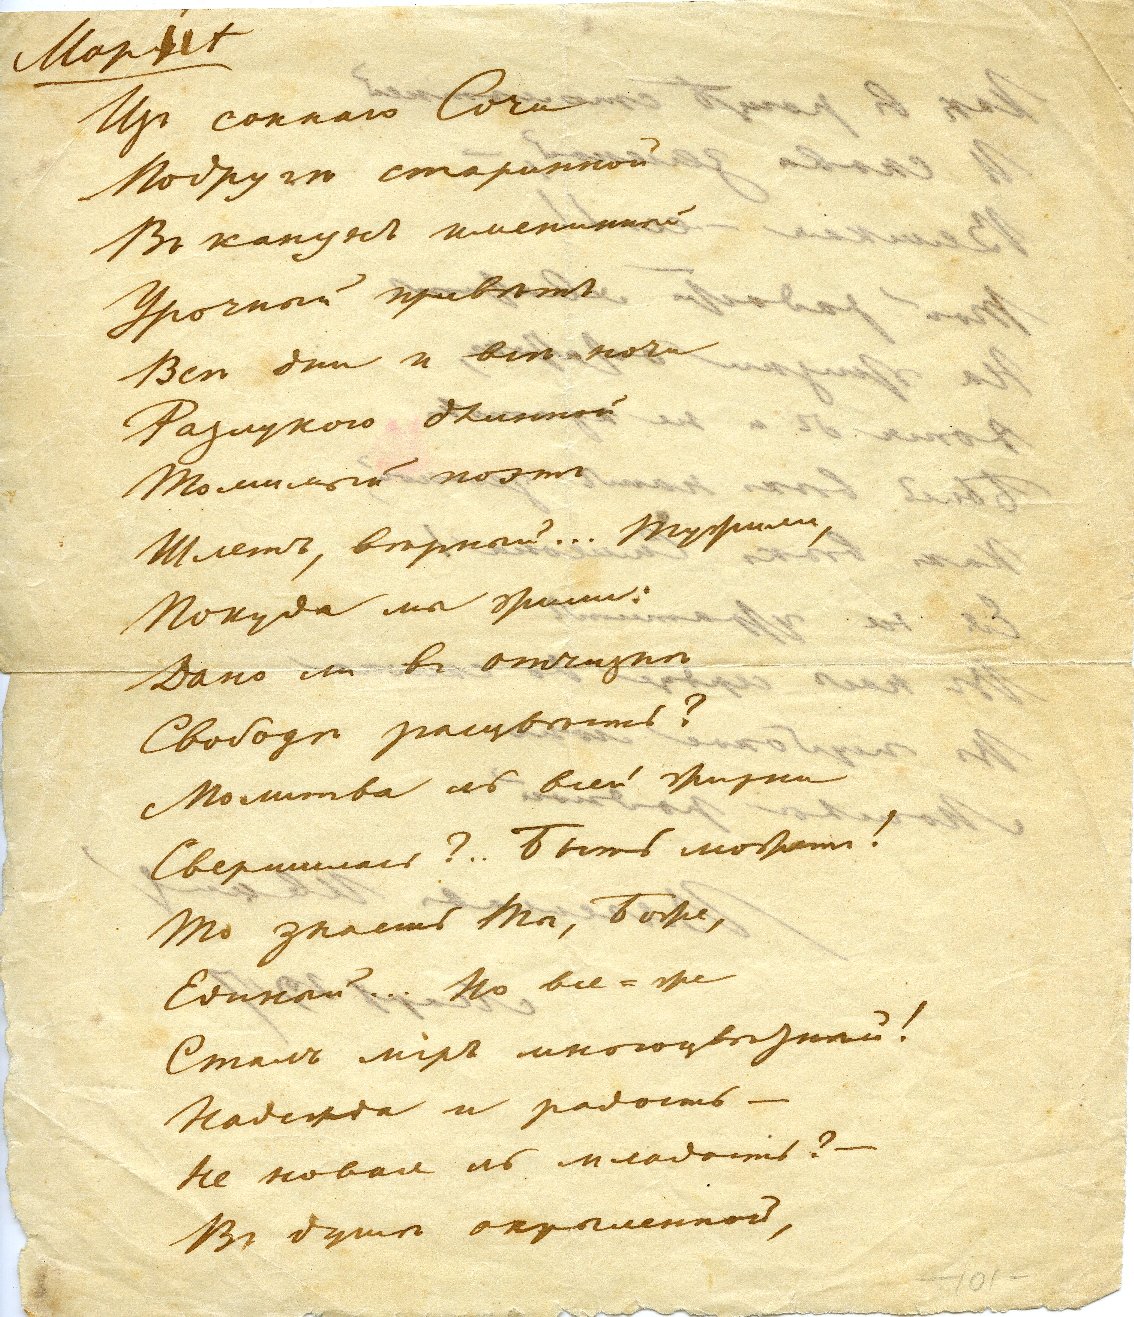 Маріи
Изъ соннаго Сочи
Подруги старинной
Въ канунъ именинной
Урочный привѣтъ
Всѣ дни и всѣ ночи
Разлукою длинной
Томимый поэтъ
Шлетъ, вѣрный...
Покуда мы жили:
Дано ли въ отчизнѣ
Свободѣ расцвѣсть?
Молитва ль всей жизни
Свершилась?.. Быть можетъ!
То знаешь Ты, Боже,
Единый... Но все-же
Сталъ міръ многоцвѣтный!
Надежда и радость —
Не новая ль младость? —
Въ душѣ окрыленной,
-101-